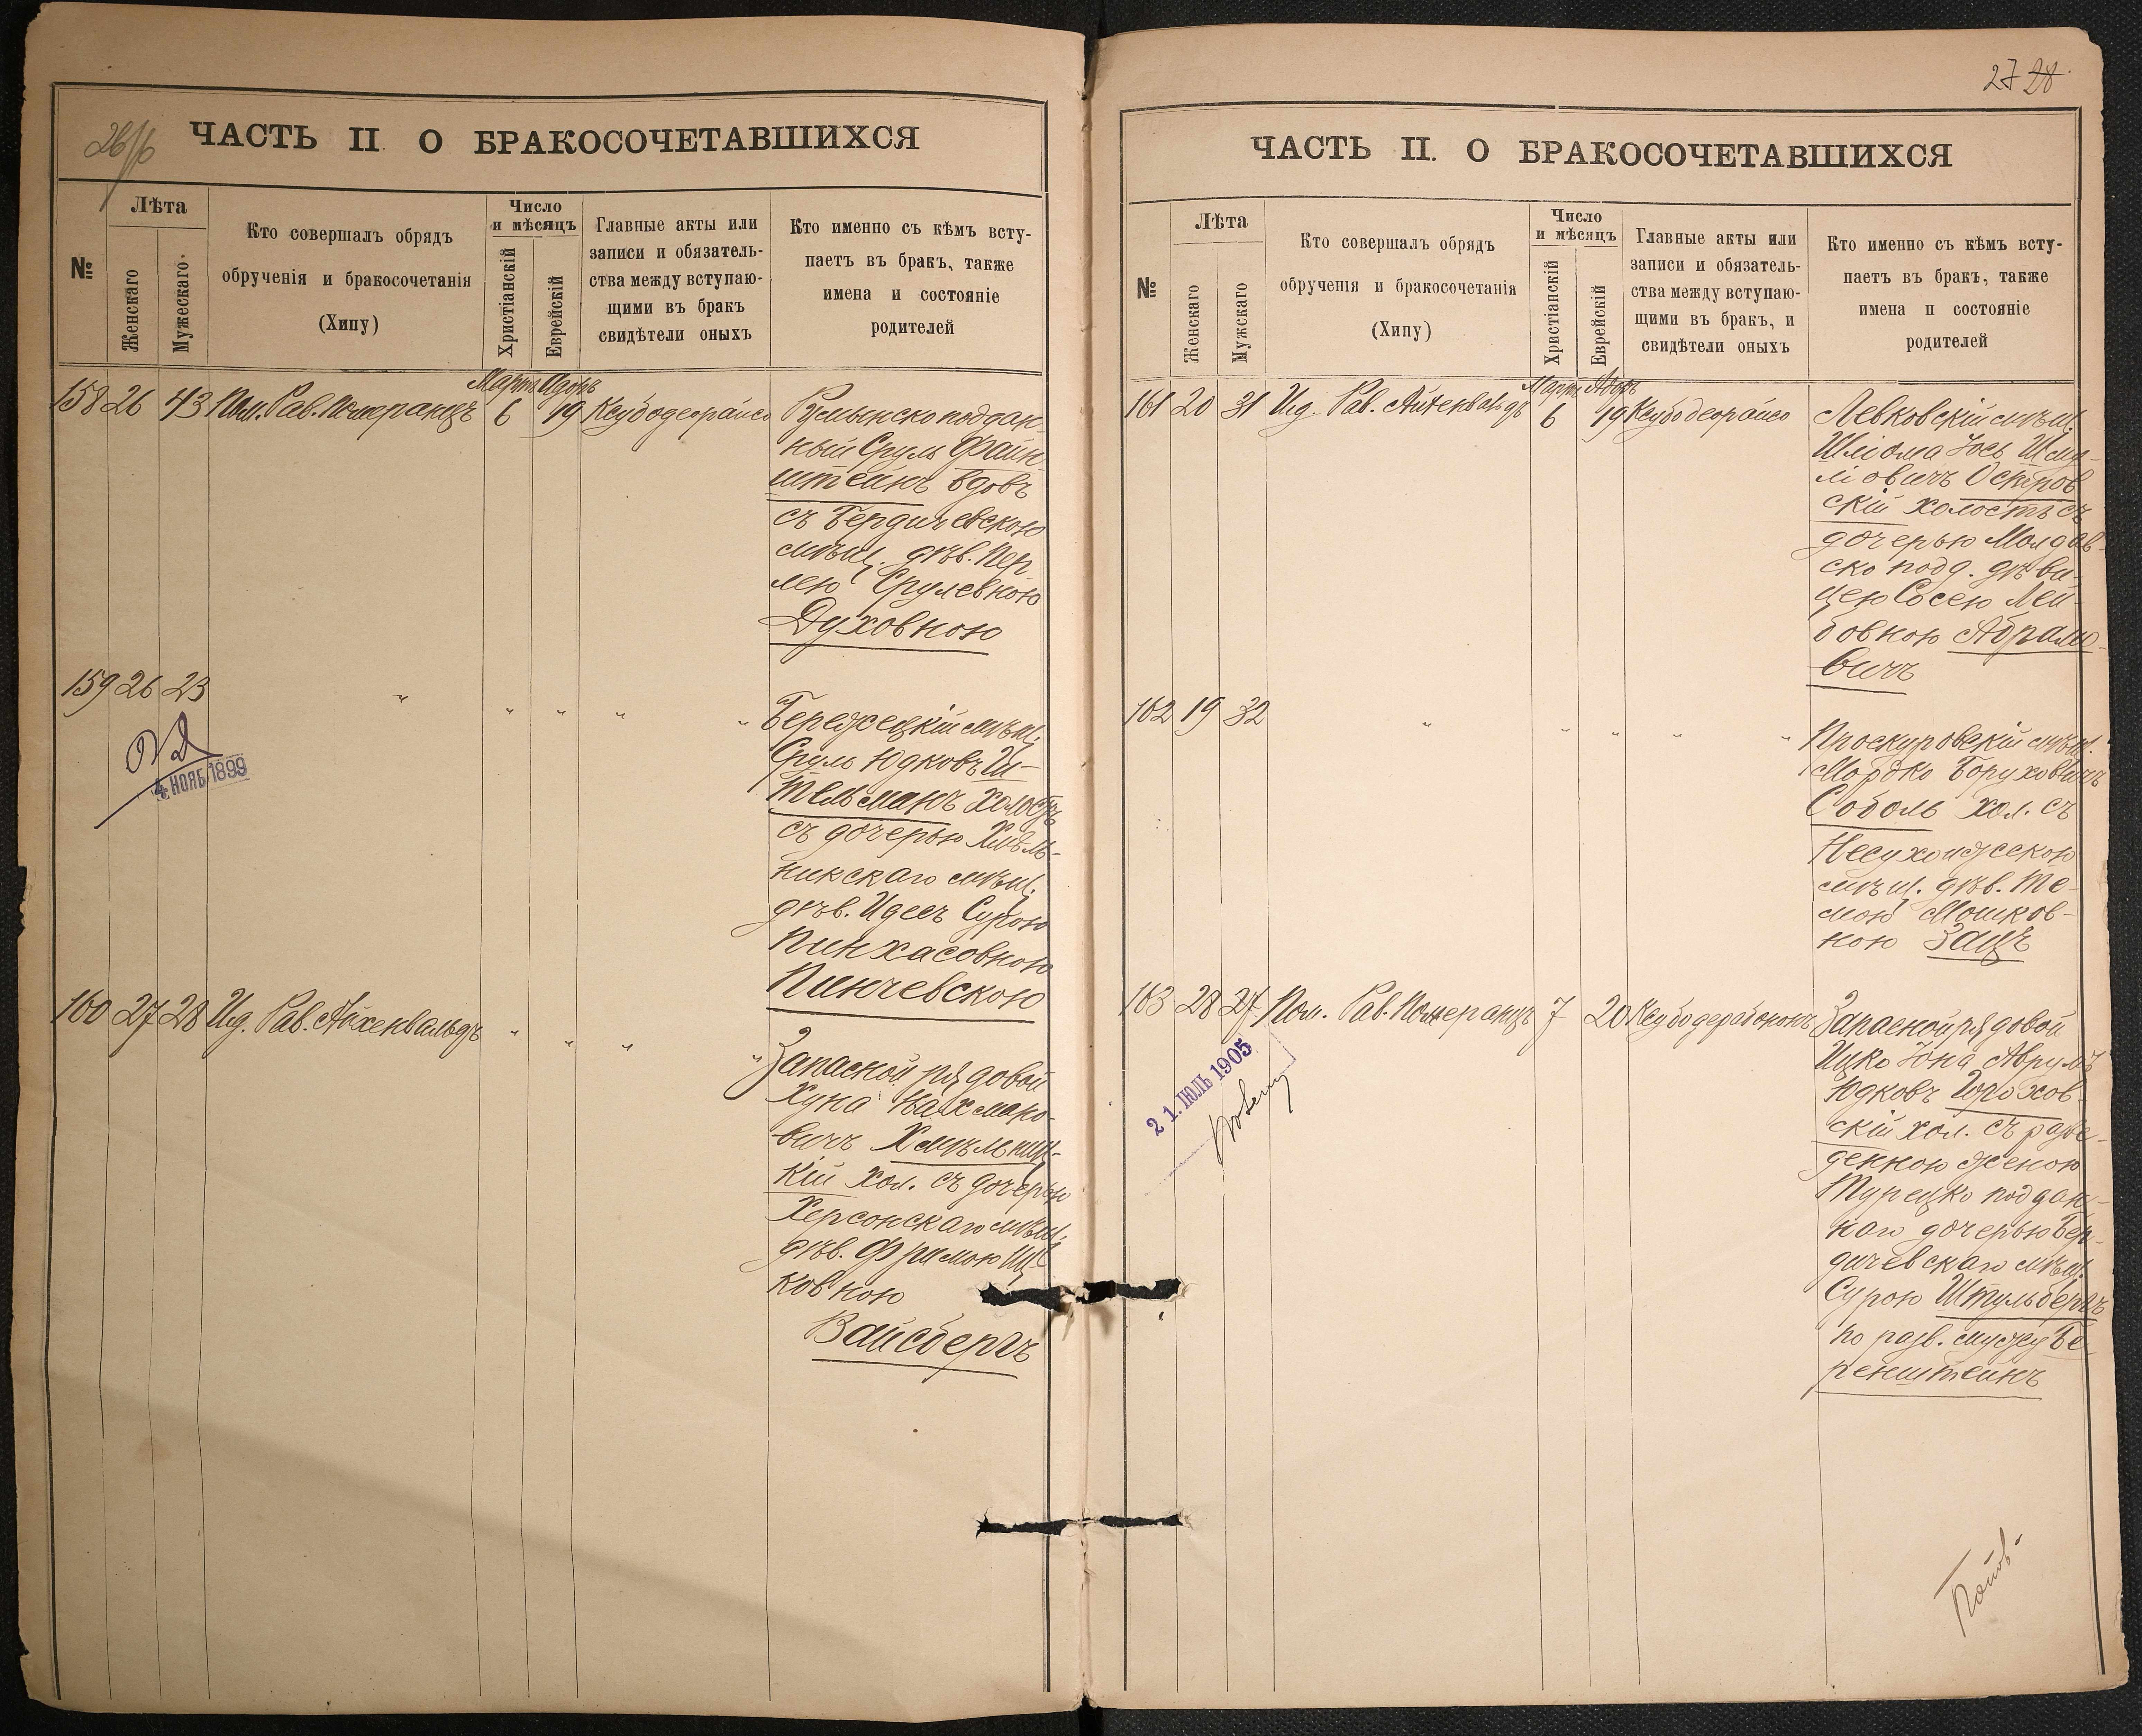 26/б
ЧАСТЬ II О БРАКОСОЧЕТАВШИХСЯ
№
Лѣта
Женскаго
Мужескаго
Кто совершалъ обрядъ
обрученія и бракосочетанія
(Хипу)
Число
и мѣсяцъ
Христіанскій
Еврейскій
Главные акты или
записи и обязатель-
ства между вступаю-
щими въ бракъ
свидѣтели оныхъ
Кто именно съ кѣмъ всту-
паетъ въ бракъ, также
имена и состояніе
родителей
158 26 43 Пом. Рав. Померанцъ Мартъ 6 Адоръ 19 Ксубодеорайсо
Румынско поддан-
ный Сруль Файн-
штейнъ вдовъ
съ Бердичевскою
мѣщ. дѣв. Пер
лею Срулевною
Духовною
159 26 23 " " " " "
4 НОЯБ 1899
Бережецкій мѣщ.
Сруль Юдковъ Ш-
тельманъ холостъ
съ дочерью Хмѣль-
никскаго мѣщ.
дѣв. Идесъ Сурою
Пинхасовною
Пинчевскою
160 27 28 Ид. Рав. Айхенвальдъ " " " "
Запасной рядовой
Хуна Нахмано-
вичъ Хмѣльниц-
кій хол. съ дочерью
Херсонскаго мѣщ.
дѣв. Фримою Иц
ковною
Вайсбергъ
27 28
ЧАСТЬ II. О БРАКОСОЧЕТАВШИХСЯ
№
Лѣта
Женскаго
Мужскаго
Кто совершалъ обрядъ
обрученія и бракосочетанія
(Хипу)
Число
и мѣсяцъ
Христіанскій
Еврейскій
Главные акты или
записи и обязатель-
ства между вступаю-
щими въ бракъ, и
свидѣтели оныхъ
Кто именно съ кѣмъ всту-
паетъ въ бракъ, также
имена и состояніе
родителей
161 20 31 Ид. Рав. Айхенвальдъ Мартъ 6 Адоръ 19 Ксубодеорайсо
Левковскій мѣщ.
Шліома Іось Шму-
ліовичъ Остров
скій холостъ съ
дочерью Молдав-
ско подд. дѣви-
цею Сосею Лей-
бовною Абрамо-
вичъ
162 19 32 " " " " "
Проскуровскій мѣщ.
Мордко Боруховичъ
Соболь хол. съ
Несухоижскою
мѣщ. дѣв. Те-
мою Мошков-
ною Зацъ
163 28 27 Пом. Рав. Померанцъ 7 20 Ксубодерабононъ
21. ІЮЛЬ 1905
Запасной рядовой
Ицко Іона Аврумъ
Юдковъ
скій хол. съ разве-
денною женою
Турецко поддан-
наго дочерью Бер-
дичевскаго мѣщ.
Сурою Штульбергъ
по разв. мужу Бе-
ренштейнъ